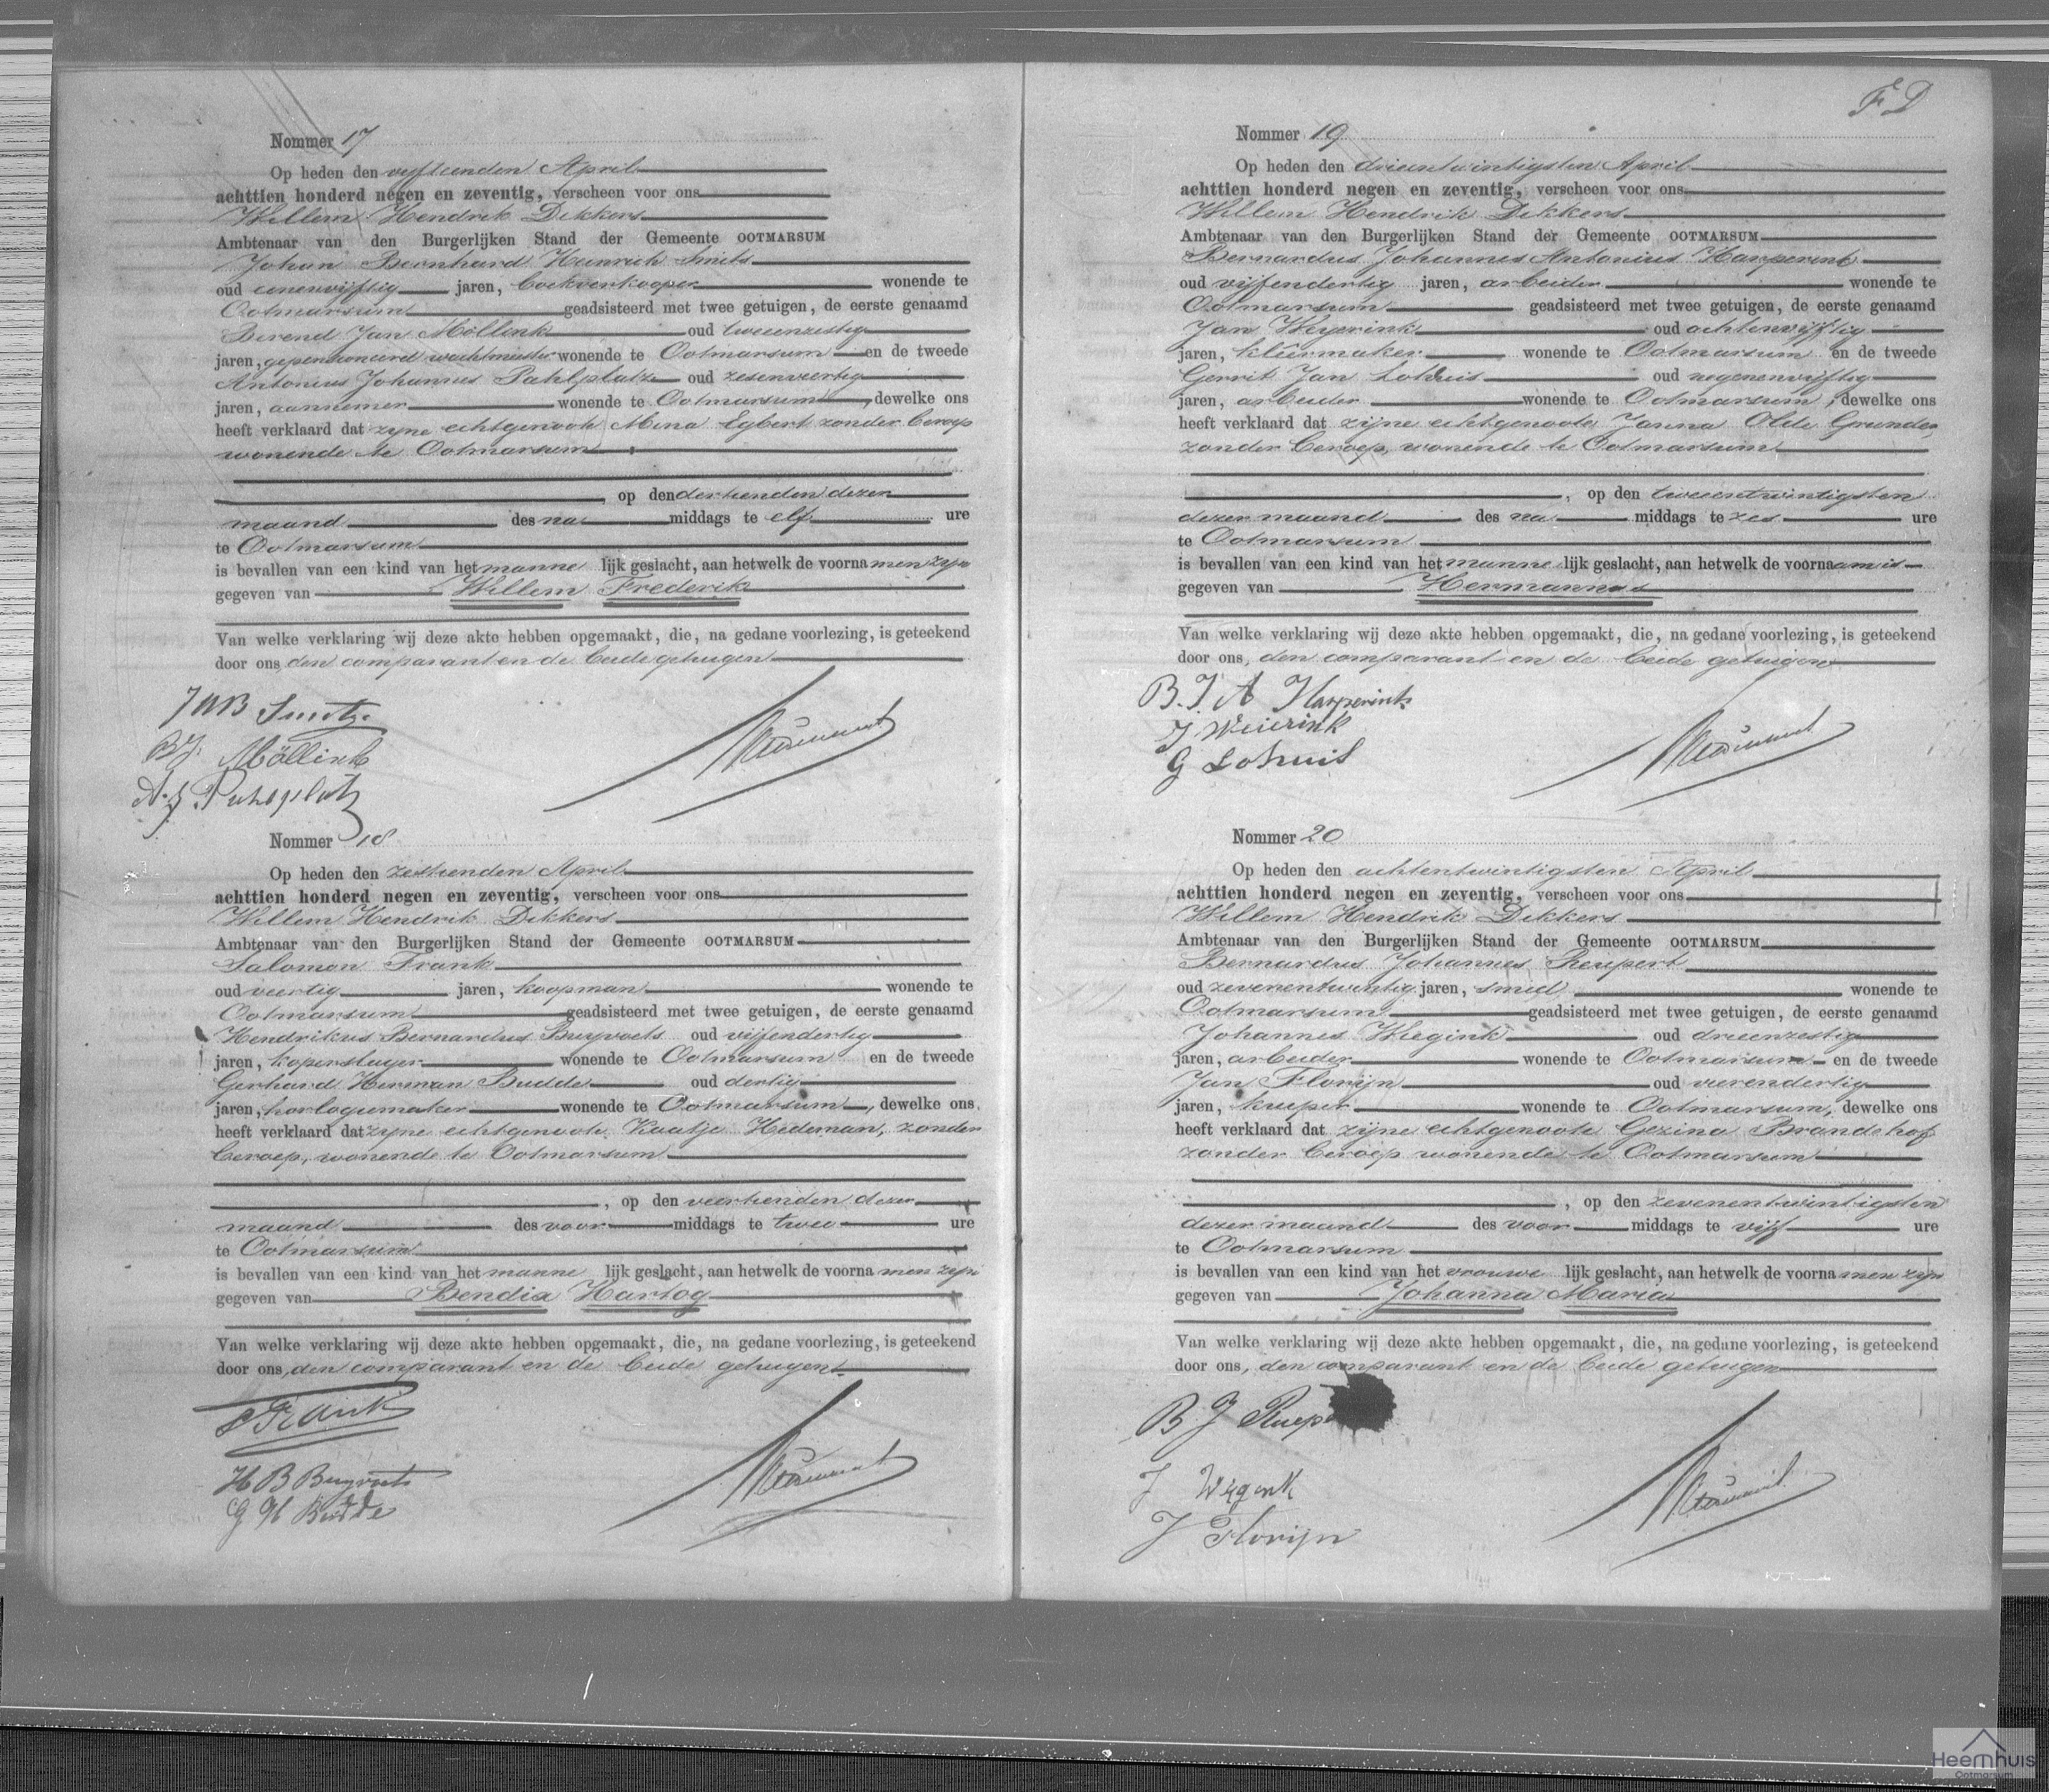 Nommer 17
Op heden den vijftienden April
achttien honderd negen en zeventig, verscheen voor ons
Willem Hendrik Dikkers
Ambtenaar van den Burgerlijken Stand der Gemeente OOTMARSUM
Johan Bernhard Heinrich Smits
oud eenenvijftig jaren, boekverkooper wonende te
Ootmarsum geadsisteerd met twee getuigen, de eerste genaamd
Berend Jan Möllink oud tweeenzestig
jaren, gepensioneerd wachtmeester wonende te Ootmarsum en de tweede
Antonius Johannes Pahlplatz oud zesenveertig
jaren, aannemer wonende te Ootmarsum, dewelke ons
heeft verklaard dat zijne echtgenoote Mina Egbert zonder beroep
wonende te Ootmarsum
, op den dertienden dezer
maand des na middags te elf ure
te Ootmarsum
is bevallen van een kind van het manne lijk geslacht, aan hetwelk de voornamen zijn
gegeven van Willem Frederik
Van welke verklaring wij deze akte hebben opgemaakt, die, na gedane voorlezing, is geteekend
door ons, den comparant en de beide getuigen
JHB Smitz
BJ. Möllink
A. J. Pahlplatz
Nommer 18
Op heden den zestienden April
achttien honderd negen en zeventig, verscheen voor ons
Willem Hendrik Dikkers
Ambtenaar van den Burgerlijken Stand der Gemeente OOTMARSUM
Salomon Frank
oud veertig jaren, koopman wonende te
Ootmarsum geadsisteerd met twee getuigen, de eerste genaamd
Hendrikus Bernardus Buijvoets oud vijfendertig
jaren, koperslager wonende te Ootmarsum en de tweede
Gerhard Herman Budde oud dertig
jaren, horlogiemaker wonende te Ootmarsum, dewelke ons
heeft verklaard dat zijne echtgenoote Kaatje Hedeman, zonder
beroep, wonende te Ootmarsum
, op den veertienden dezer
maand des voor middags te twee ure
te Ootmarsum
is bevallen van een kind van het manne lijk geslacht, aan hetwelk de voorna men zijn
gegeven van Bendix Hartog
Van welke verklaring wij deze akte hebben opgemaakt, die, na gedane voorlezing, is geteekend
door ons, den comparant en de beide getuigen.
S Frank
H B Buyvoets
G H Budde
F D
Nommer 19
Op heden den drieentwintigsten April
achttien honderd negen en zeventig, verscheen voor ons
Willem Hendrik Dikkers
Ambtenaar van den Burgerlijken Stand der Gemeente OOTMARSUM
Bernardus Johannes Antonius Harperink
oud vijfendertig jaren, arbeider wonende te
Ootmarsum geadsisteerd met twee getuigen, de eerste genaamd
Jan Weyerink oud achtenvijftig
jaren, kleermaker wonende te Ootmarsum en de tweede
Gerrit Jan Lohuis oud negenenvijftig
jaren, arbeider wonende te Ootmarsum, dewelke ons
heeft verklaard dat zijne echtgenoote Janna Olde Grunder,
zonder beroep, wonende te Ootmarsum
, op den tweeentwintigsten
dezer maand des na middags te zes ure
te Ootmarsum
is bevallen van een kind van het manne lijk geslacht, aan hetwelk de voornaam is
gegeven van Hermannus
Van welke verklaring wij deze akte hebben opgemaakt, die, na gedane voorlezing, is geteekend
door ons, den comparant en de beide getuigen
B. J. A Harperink
J Weierink
G Lohuis
Nommer 20
Op heden den achtentwintigsten April
achttien honderd negen en zeventig, verscheen voor ons
Willem Hendrik Dikkers
Ambtenaar van den Burgerlijken Stand der Gemeente OOTMARSUM
Bernardus Johannes Reupert
oud zevenentwintig jaren, smid wonende te
Ootmarsum geadsisteerd met twee getuigen, de eerste genaamd
Johannes Wegink oud drieenzestig
jaren, arbeider wonende te Ootmarsum en de tweede
Jan Florijn oud vierendertig
jaren, kuiper wonende te Ootmarsum, dewelke ons
heeft verklaard dat zijne echtgenoote Gezina Brandehof
zonder beroep wonende te Ootmarsum
, op den zevenentwintigsten
dezer maand des voor middags te vijf ure
te Ootmarsum
is bevallen van een kind van het vrouwe lijk geslacht, aan hetwelk de voorna men zijn
gegeven van Johanna Maria
Van welke verklaring wij deze akte hebben opgemaakt, die, na gedane voorlezing, is geteekend
door ons, den comparant en de beide getuigen
B J
J Wegink
J Florijn
Heemhuis
Ootmarsum